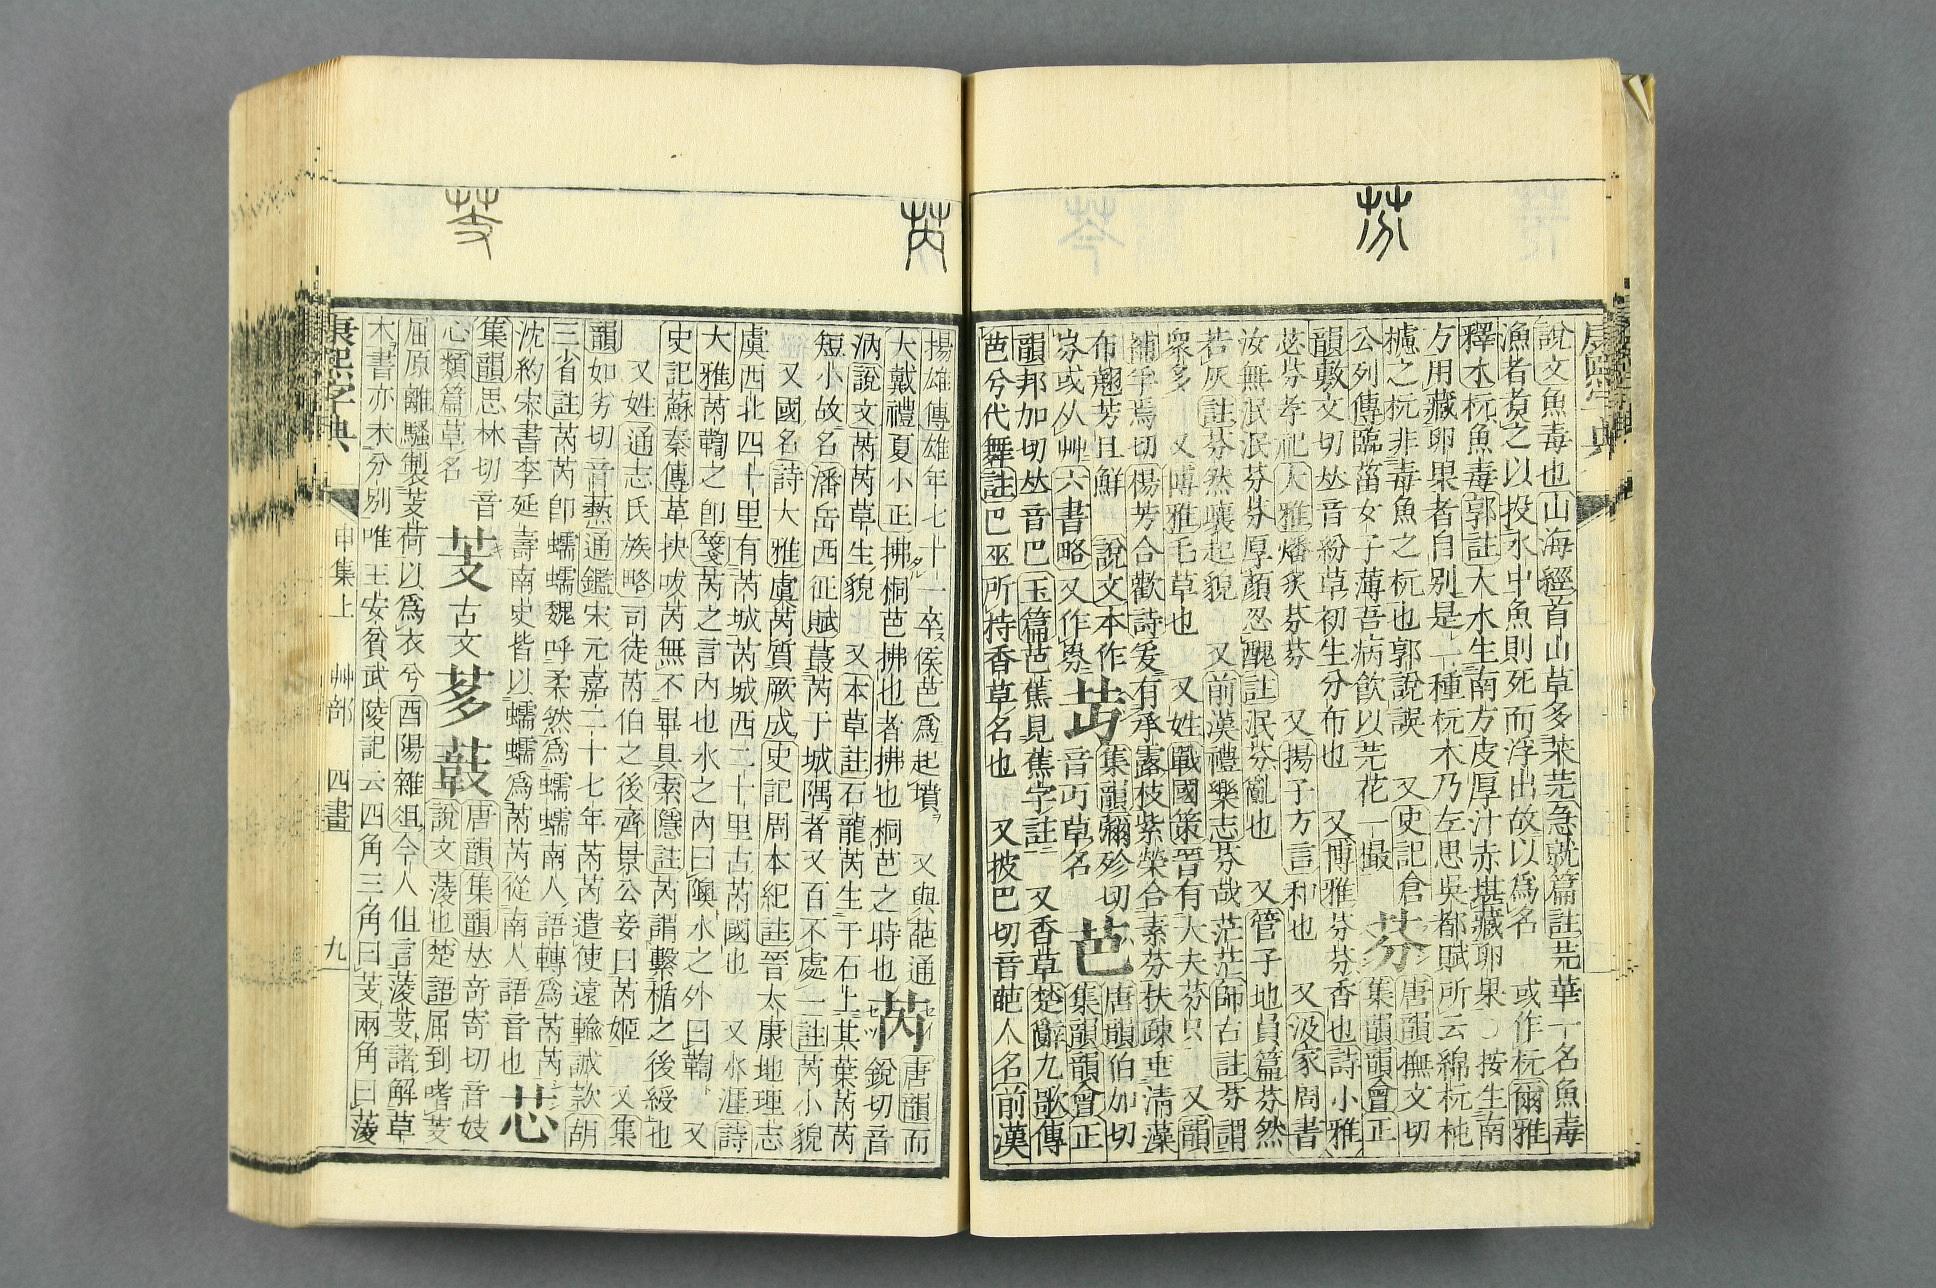 芬
康熙字典
說文魚毒也山海經首山草多茱芫急就篇註芫華一名魚毒
漁者煑之以投水中魚則死而浮出故以爲名　或作杬爾雅
釋木杬魚毒郭註大木生南方皮厚汁赤堪藏卵果○按生南
方用藏卵果者自別是一種杬木乃左思吳都賦所云綿杬杶
櫨之杬非毒魚之杬也郭說誤　又史記倉
公列傳臨菑女子薄吾病飲以芫花一撮　芬　唐韻撫文切集韻韻會正
韻敷文切𠀤音紛草初生分布也　又博雅芬芬香也詩小雅
苾芬孝祀大雅燔炙芬芬　又揚子方言和也　又汲冢周書
汝無泯泯芬芬厚顏忍醜註泯芬亂也　又管子地員篇芬然
若灰註芬然壤起貌　又前漢禮樂志芬哉茫茫師古註芬謂
衆多　又博雅毛草也　又姓戰國策晉有大夫芬只　又韻
補孚焉切楊芳合歡詩爰有承露枝紫榮合素芬扶疎垂淸藻
布翹芳且鮮　說文本作𡴞　集韻翂㱈切
𡴞或从艸六書略又作𣁋　芀　音丂草名　芭　唐韻伯加切集韻韻會正
韻邦加切𠀤音巴玉篇芭蕉見蕉字註　又香草楚辭九歌傳
芭兮代舞註巴巫所持香草名也　又披巴切音葩人名前漢
芮
芰
揚雄傳雄年七十一卒侯芭爲起墳　又與葩通
大戴禮夏小正拂桐芭拂也者拂也桐芭之時也　芮　唐韻而銳切音
汭說文芮芮草生貌　又本草註石龍芮生于石上其葉芮芮
短小故名潘岳西征賦蕞芮于城隅者又百不處一註芮小貌
又國名詩大雅虞芮質厥成史記周本紀註晉太康地理志
虞西北四十里有芮城芮城西二十里古芮國也　又水涯詩
大雅芮鞫之卽箋芮之言內也水之內曰隩水之外曰鞫　又
史記蘇秦傳革抉㕹芮無不畢具索隱註芮謂繫楯之後綬也
又姓通志氏族略司徒芮伯之後齊景公妾曰芮姬　又集
韻如劣切音爇通鑑宋元嘉二十七年芮芮遣使遠輸誠款胡
三省註芮芮卽蠕蠕魏呼柔然爲蠕蠕南人語轉爲芮芮
沈約宋書李延壽南史皆以蠕蠕爲芮芮從南人語音也　芯
集韻思林切音
心類篇草名　芰　古文　茤　䔪　唐韻集韻𠀤奇寄切音妓說文蔆也楚語屈到嗜芰
屈原離騷製芰荷以爲衣兮酉陽雜俎今人但言蔆芰諸解草
木書亦未分別唯王安貧武陵記云四角三角曰芰兩角曰蔆
康熙字典　申集上　艸部　四畫　九